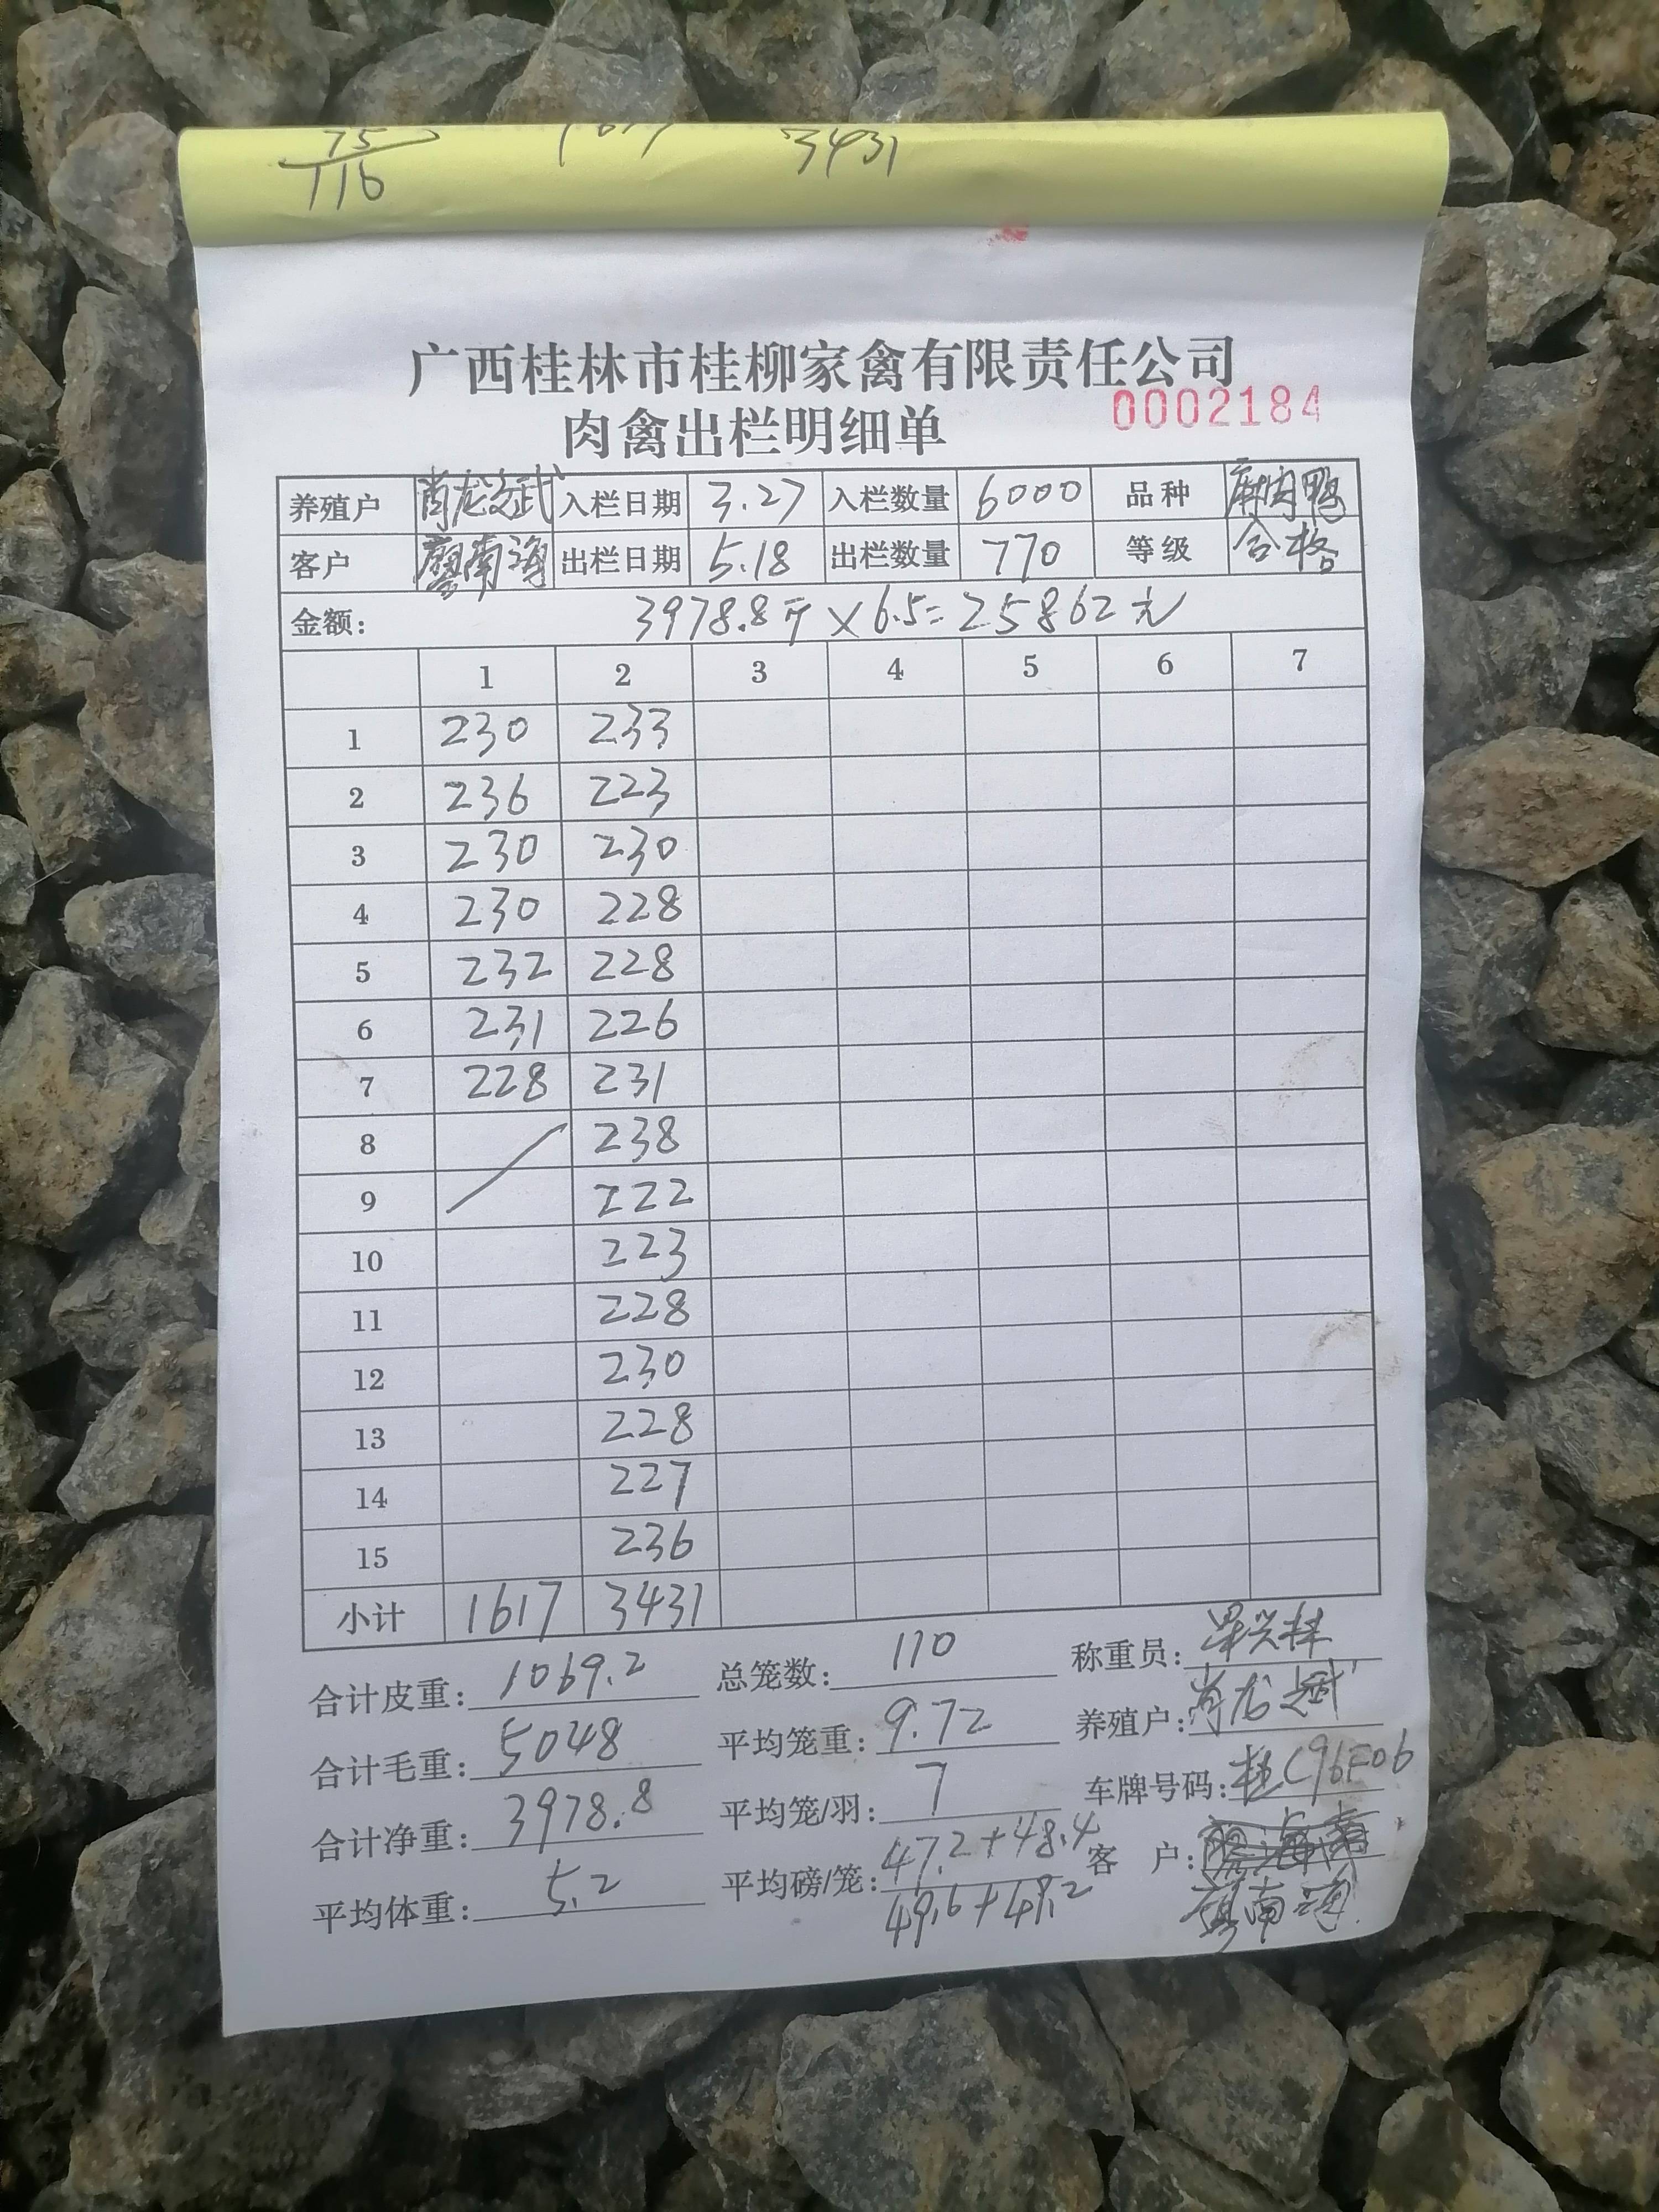 75
116
3431
广西桂林市桂柳家禽有限责任公司
肉禽出栏明细单 0002184
养殖户 肖龙文武 入栏日期 3.27 入栏数量 6000 品种 麻肉鸭
客户 廖南海 出栏日期 5.18 出栏数量 770 等级 合格
金额: 3978.8斤×6.5=25862元
1 2 3 4 5 6 7
1 230 233
2 236 223
3 230 230
4 230 228
5 232 228
6 231 226
7 228 231
8 238
9 222
10 223
11 228
12 230
13 228
14 227
15 236
小计 1617 3431
合计皮重: 1069.2 总笼数: 110 称重员:
合计毛重: 5048 平均笼重: 9.72 养殖户: 肖龙武
合计净重: 3978.8 平均笼/羽: 7 车牌号码: 桂C96F06
平均体重: 5.2 平均磅/笼: 47.2+48.4 客 户:
49.6+49.2 廖南海